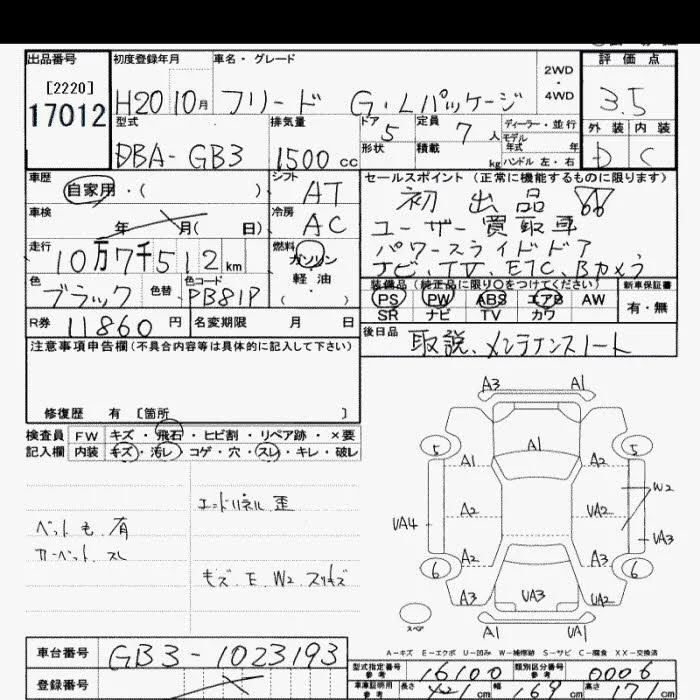 出品番号
[2220]
17012
初度登録年月
H20 10月
車名・グレード
フリード G・Lパッケージ
2WD
・
4WD
評価点
3.5
外装 内装
D C
型式
DBA-GB3
排気量
1500 cc
ドア
5
形状
定員
7 人
積載
kg
ディーラー・並行
モデル
年式 年
ハンドル 左・右
車歴
自家用・( )
車検
年 月( 日)
走行
10万7千512 km
色
ブラック
色替
色コード
PB81P
R券
11860 円
名変期限 月 日
シフト
AT
冷房
AC
燃料
ガソリン
軽油
( )
セールスポイント (正常に機能するものに限ります)
初出品
ユーザー買取車
パワースライドドア
ナビ、TV、ETC、Bカメラ
装備品(純正品に限り○をつけてください)
PS PW ABS エアB AW
SR ナビ TV カワ
新車保証書
有・無
後日品
取説、メンテナンスノート
注意事項申告欄(不具合内容等は具体的に記入して下さい)
修復歴 有 [箇所 ]
検査員
記入欄
FW キズ・飛石・ヒビ割・リペア跡・×要
内装 キズ・汚レ・コゲ・穴・スレ・キレ・破レ
エンドパネル 歪
ペット毛 有
カーペット スレ
キズ E W2 スリキズ
A3 A1
5 A1 5
A1 A2
W2
UA4 A2 UA2 UA3
A2 A3
6 6
A3 UA3 UA2
スペア
A1 UA1
A-キズ E-エクボ U-凹み W-補修跡 S-サビ C-腐食 XX-交換済
車台番号
GB3-1023193
登録番号
型式指定番号
参考
16100
類別区分番号
参考
0006
車庫証明用
参考
長さ 421 cm 幅 169 cm 高さ 171 cm